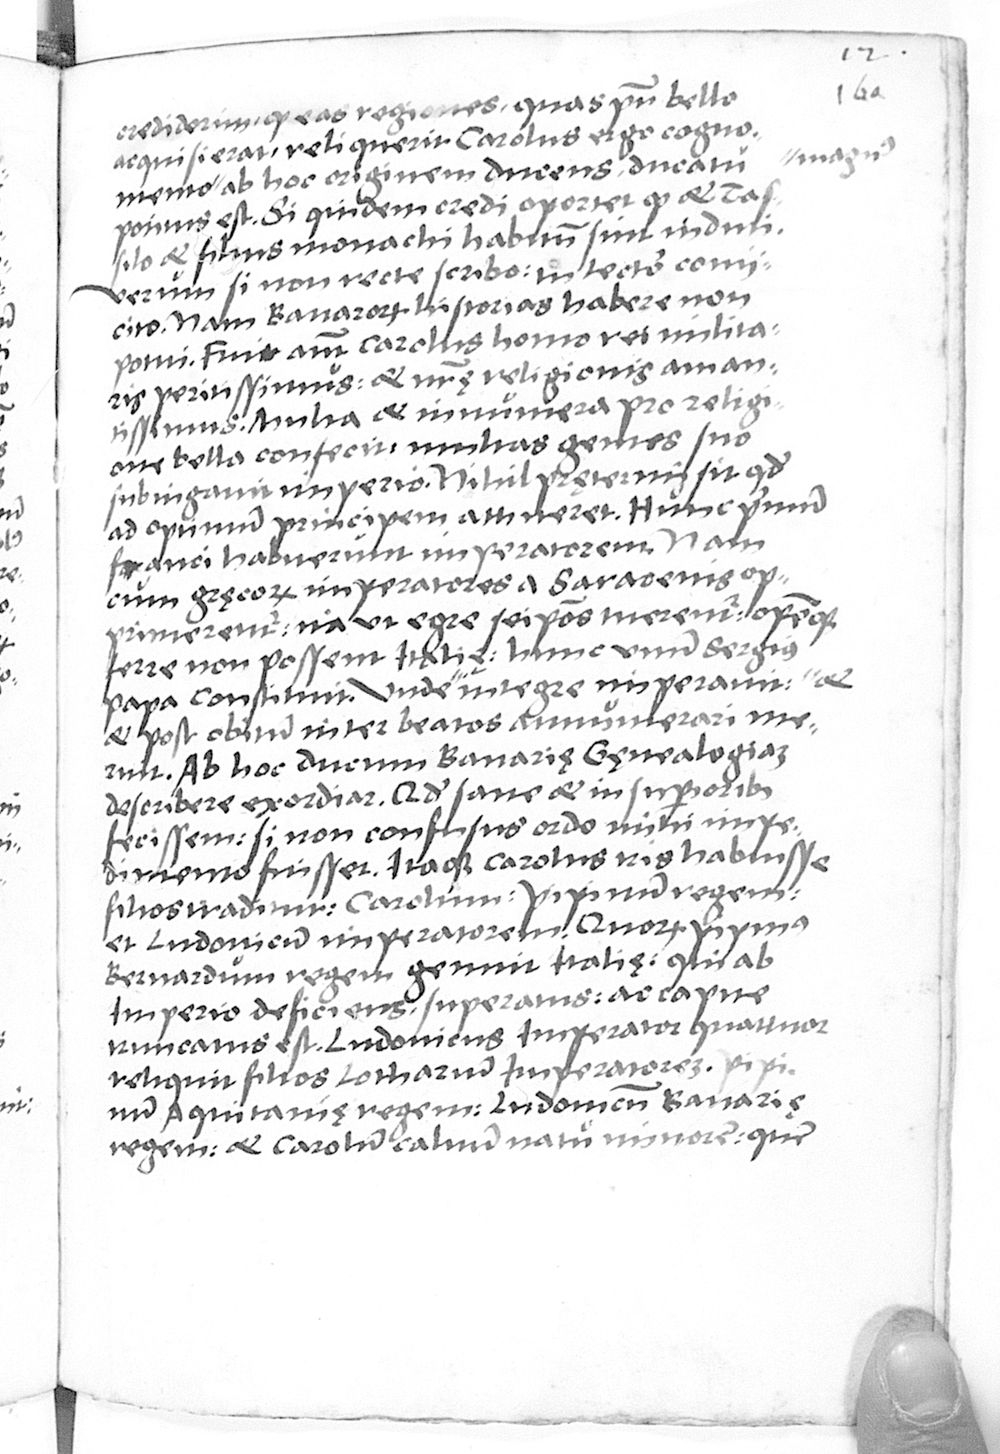 12.
160
crediderim, ꝙ eas regiones, quas pñ bello
acquisierat, reliquerit Carolus ergo cogno-
mento " ab hoc originem ducens, ducatu " magnꝰ
potitus est. Si quidem credi oportet ꝙ & Tas-
silo & filius monachi habitũ sint induti.
verum si non recte scribo: intectꝰ comi-
cito. Nam Bauaroꝝ historias habere non
potui. Fuit aũt Carolus homo rei milita-
ris peritissimus: & nr̃ę religionis aman-
tissimus. Multa & innumera pro religi-
one bella confecit, multas gentes suo
subiugauit imperio. Nihil prętermissit qd̃
ad optimũ principem attineret. Hunc primũ
franci habuerunt imperatorem. Nam
cum gręcoꝝ imperatores a Saracenis op-
primerentʳ: ita vt egre seip̃os tuerentʳ: opẽqꝫ
ferre non possent Italię: hunc vnũ Sergiꝰ
papa constituit. Vnde " integre imperauit: " &
& post obitũ inter beatos annumerari me-
ruit. Ab hoc ducum Bauarię Gęnealogiaꝫ
describere exordiar. Qd̃ sane & in superioribꝰ
fecissem: si non confusus ordo mihi impe-
dimento fuisset. Itaqꝫ Carolus tris habuisse
filios traditur: Carolum: Pipinũ regem:
et Ludouicũ imperatorem. Quoꝝ Pipinꝰ
Bernardum regem genuit Italię: qui ab
Imperio deficiens, superatus: ac capite
truncatus est. Ludouicus Imperator quattuor
reliquit filios Lotharium Imperatoreꝫ. Pipi-
nũ Aquitanię regem: Ludouicũ Bauarię
regem: & Carolũ caluũ natu minorẽ: quẽ